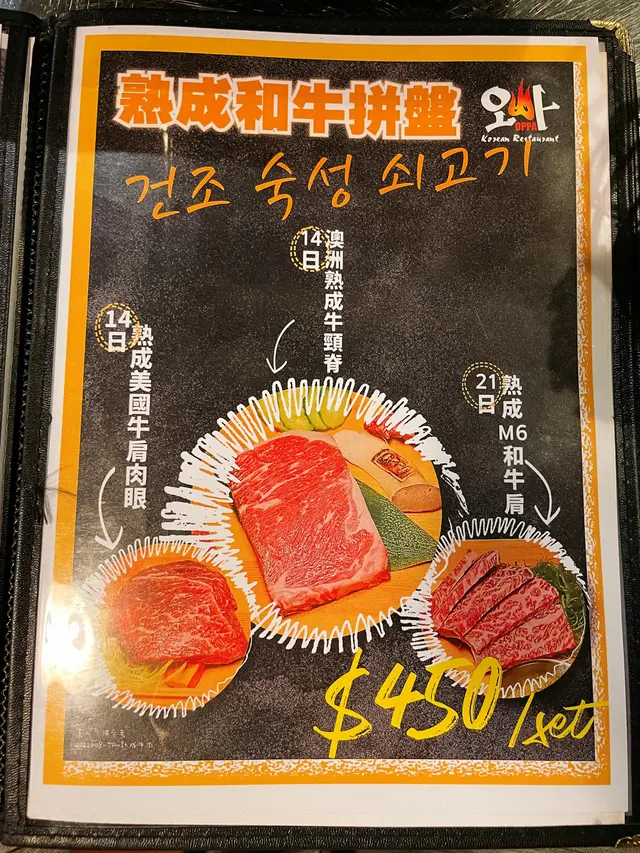 熟成和牛拼盤
오빠
OPPA
Korean Restaurant
건조 숙성 쇠고기
14日
澳洲熟成牛頸脊
14日
熟成美國牛肩肉眼
21日
熟成M6和牛肩
$450/set